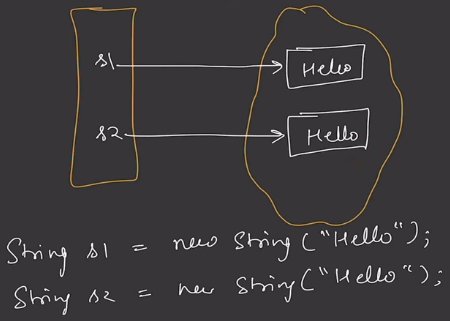 s1
Hello
s2
Hello
String s1 = new String("Hello");
String s2 = new String("Hello");